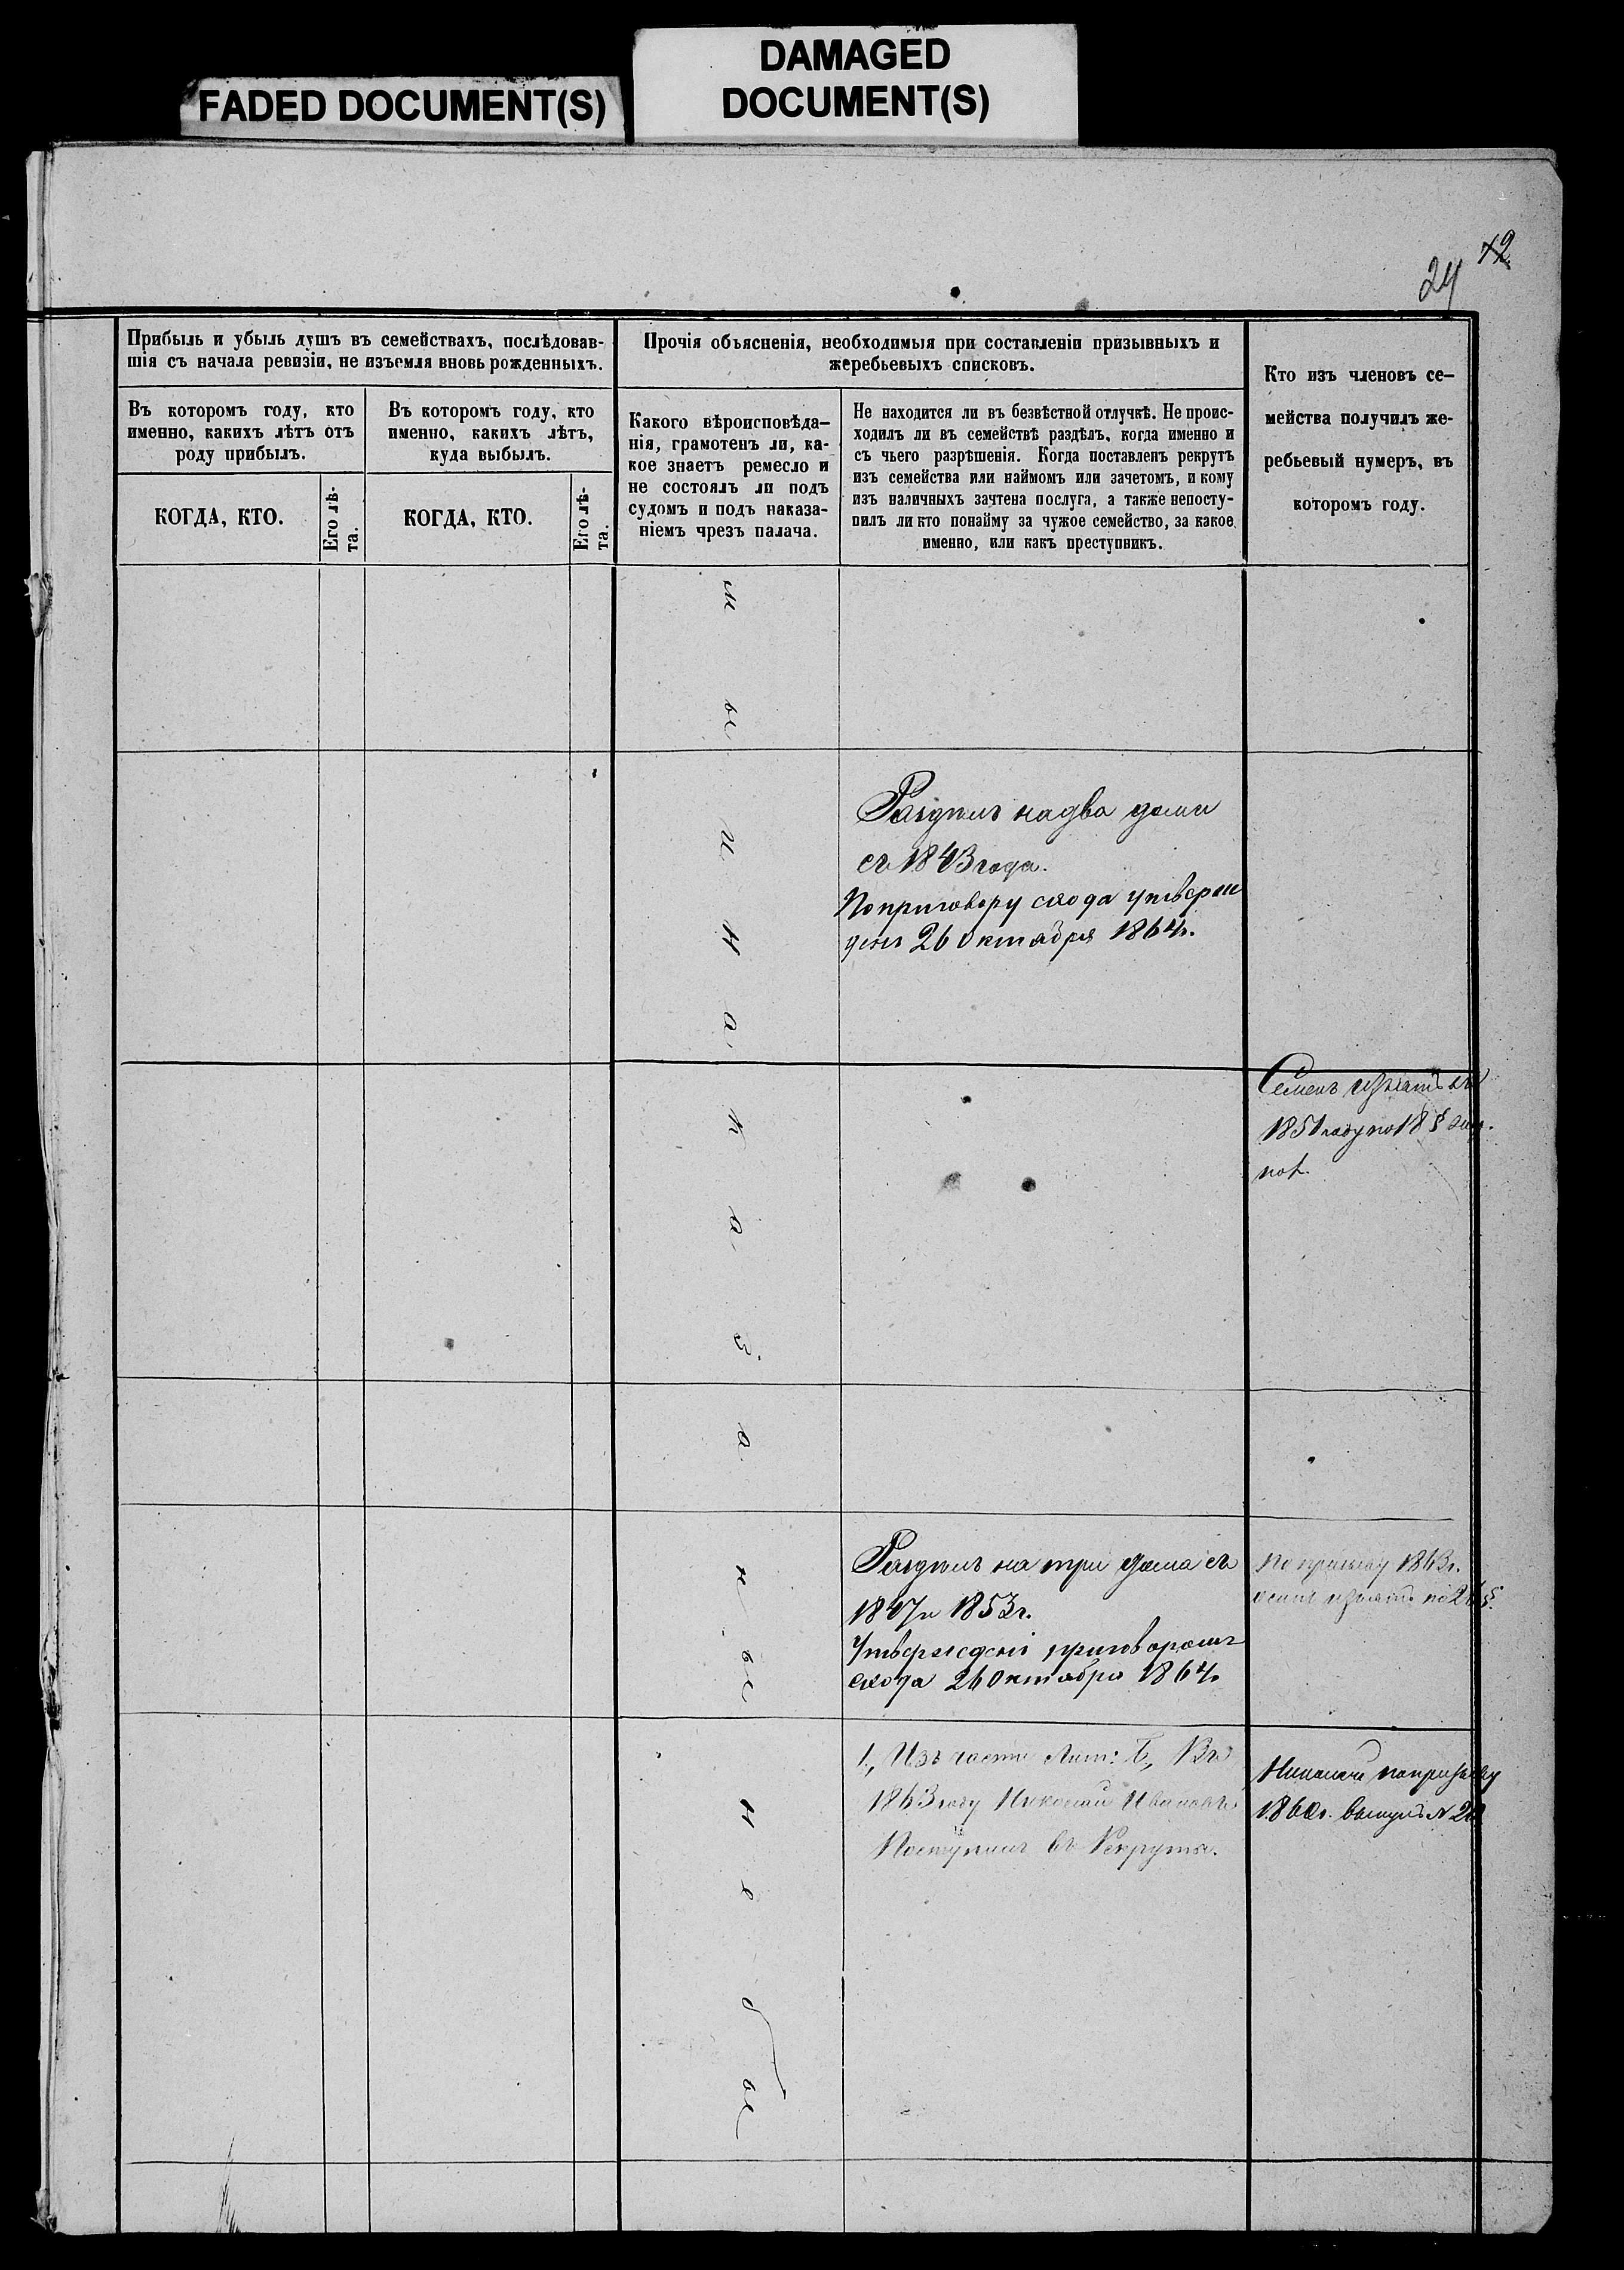 FADED DOCUMENT(S)
DAMAGED
DOCUMENT(S)
12
24
Прибыль и убыль душъ въ семействахъ, послѣдовав-
шія съ начала ревизіи, не изъемля вновь рожденныхъ.
Въ которомъ году, кто
именно, какихъ лѣтъ отъ
роду прибылъ.
КОГДА, КТО.
Его лѣ-
та.
Въ которомъ году, кто
именно, какихъ лѣтъ,
куда выбылъ.
КОГДА, КТО.
Его лѣ-
та.
Прочія объясненія, необходимыя при составленіи призывныхъ и
жеребьевыхъ списковъ.
Какого вѣроисповѣда-
нія, грамотенъ ли, ка-
кое знаетъ ремесло и
не состоялъ ли подъ
судомъ и подъ наказа-
ніемъ чрезъ палача.
Не находится ли въ безвѣстной отлучкѣ. Не проис-
ходилъ ли въ семействѣ раздѣлъ, когда именно и
съ чьего разрѣшенія. Когда поставленъ рекрутъ
изъ семейства или наймомъ или зачетомъ, и кому
изъ наличныхъ зачтена послуга, а также непосту-
пилъ ли кто понайму за чужое семейство, за какое
именно, или какъ преступникъ.
Кто изъ членовъ се-
мейства получилъ же-
ребьевый нумеръ, въ
которомъ году.
м ы и н а к а з а н ы н е б ы
Раздѣлъ на два дома
съ 1843 года.
По приговору схода утверж
денъ 26 октября 1864 г.
Семенъ изъятъ въ
1851 году по 18 §
Раздѣлъ на три дома съ
1847 и 1853 г.
Утвержденъ приговоромъ
схода 26 октября 1864
По призыву 1863 г.
изъятъ по §.
1, Изъ части Лит: Б, Въ
1863 году Николай Ивановъ
Поступилъ въ Рекруты.
Николай по призыву
1860 г. вынулъ № 20